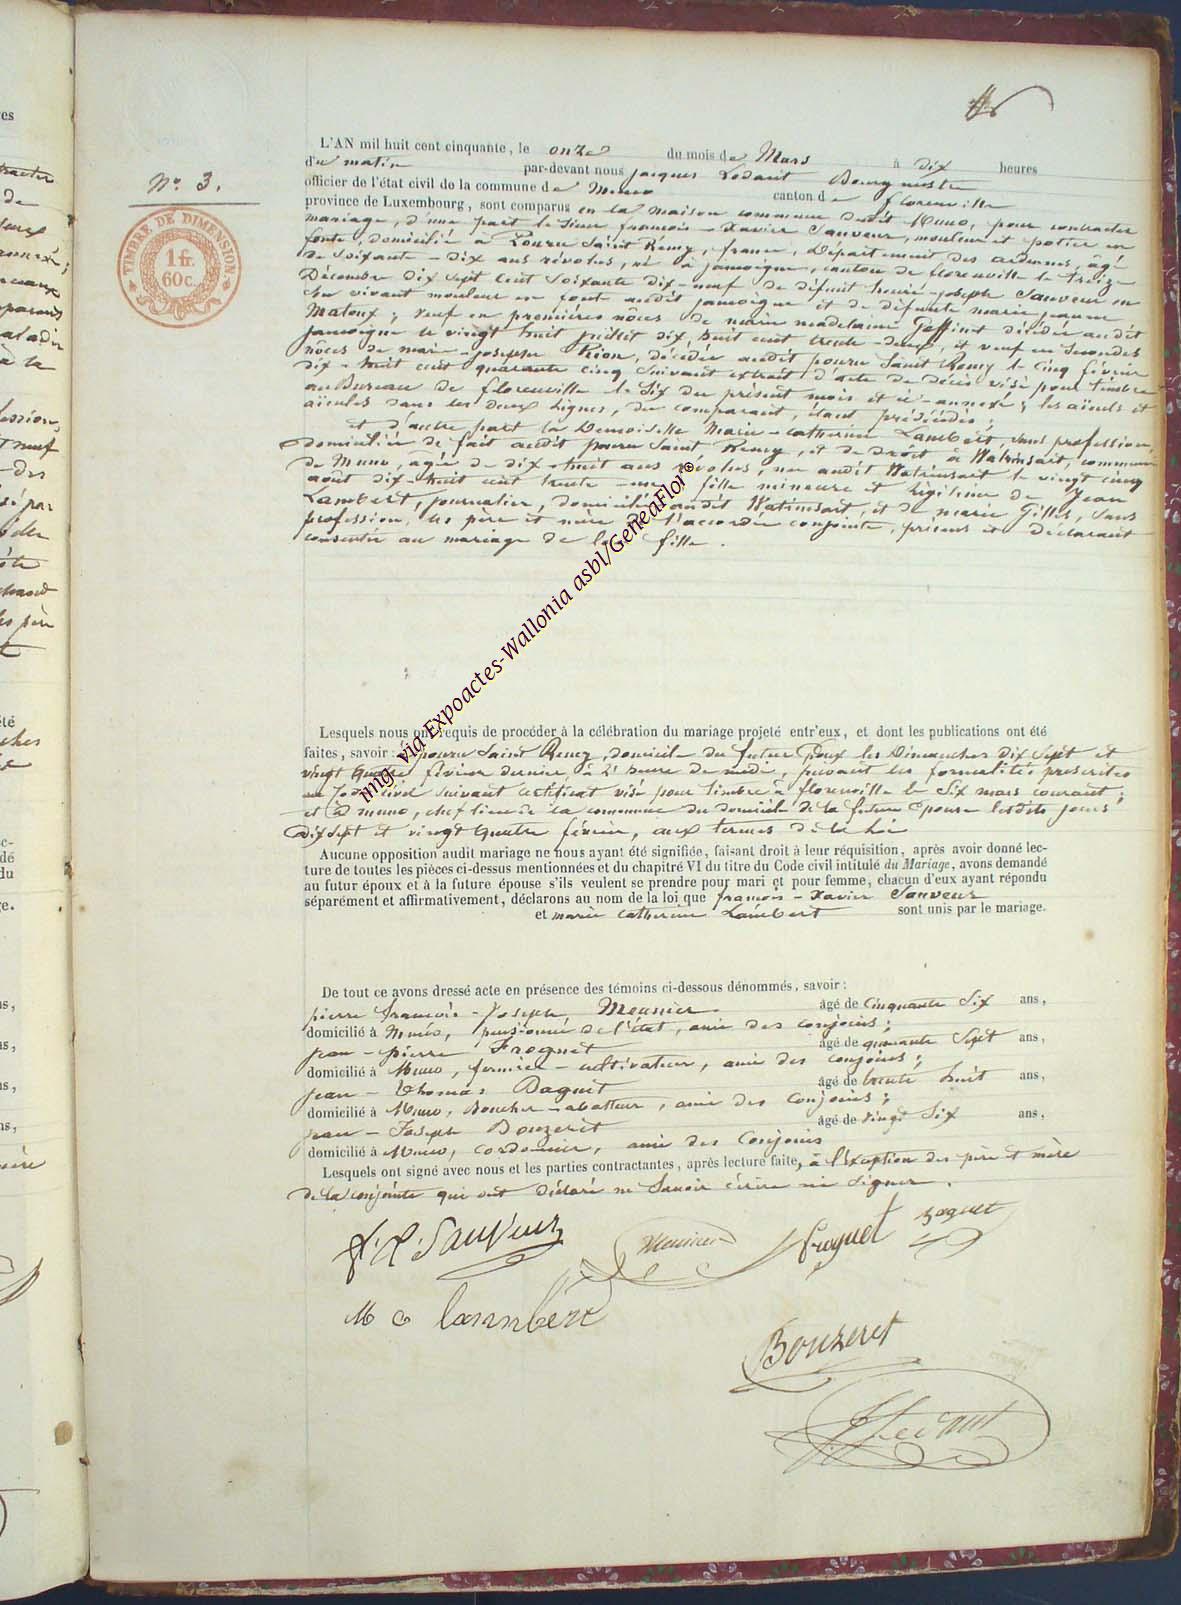 N°. 3.
TIMBRE DE DIMENSION
1 fr.
60 c.
L'AN mil huit cent cinquante, le onze du mois de Mars à dix heures
du matin par-devant nous jacques Ledant Bourgmestre
officier de l'état civil de la commune de Muno canton de florenville
province de Luxembourg, sont comparus en la maison commune dudit Muno, pour contracter
mariage, d'une part le sieur françois-Xavier Sauveur, mouleur et potier en
fonte, domicilié à Pouru Saint Remy, france, Département des ardennes, âgé
de soixante-dix ans révolus, né à jamoigne, canton de florenville le treize
Décembre dix sept cent soixante dix-neuf de défunt henri-joseph Sauveur en
son vivant mouleur en fonte audit jamoigne et de défunte marie jeanne
Maloux; veuf en premières nôces de marie madelaine décédée audit
jamoigne le vingt huit juillet dix huit cent trente-deux, et veuf en secondes
nôces de marie-josephe Pion, décédée audit pouru Saint Remy le Cinq février
dix-huit cent quarante cinq suivant extrait d'acte de décès visé pour timbre
au Bureau de florenville le Six du présent mois et ci-annexé; les aïeuls et
aïeules dans les deux lignes, du comparant, étant prédécédés;
et d'autre part la Demoiselle Marie-catherine Lambert, sans profession,
domiciliée de fait audit pouru Saint Remy, et de droit à Watrinsart, commune
de Muno, âgée de dix-huit ans révolus, née audit Watrinsart le vingt cinq
août dix-huit cent trente-une, fille mineure et légitime de Jean
Lambert, journalier, domicilié audit Watrinsart, et de marie Gilles, sans
profession, les père et mère de l'accordée conjointe, présens et déclarant
consentir au mariage de leur fille.
Lesquels nous ont requis de procéder à la célébration du mariage projeté entr'eux, et dont les publications ont été
faites, savoir: à pouru Saint Remy, domicile du futur époux les Dimanches dix sept et
vingt quatre février dernier, à l'heure de midi, suivant les formalités prescrites
au Code Civil suivant certificat visé pour timbre à florenville le Six mars courant;
et à muno, chef lieu de la commune du domicile de la future épouse lesdits jours
dix sept et vingt quatre février, aux termes de la loi
Aucune opposition audit mariage ne nous ayant été signifiée, faisant droit à leur réquisition, après avoir donné lec-
ture de toutes les pièces ci-dessus mentionnées et du chapitré VI du titre du Code civil intitulé du Mariage, avons demandé
au futur époux et à la future épouse s'ils veulent se prendre pour mari et pour femme, chacun d'eux ayant répondu
séparément et affirmativement, déclarons au nom de la loi que françois-Xavier Sauveur
et marie catherine Lambert sont unis par le mariage.
De tout ce avons dressé acte en présence des témoins ci-dessous dénommés, savoir:
pierre françois-Joseph Meunier âgé de Cinquante Six ans,
domicilié à Muno, pensionné de l'état, ami des conjoins;
jean-pierre Froguet âgé de quarante Sept ans,
domicilié à Muno, fermier-cultivateur, ami des conjoins;
jean-Thomas Baguet âgé de trente huit ans,
domicilié à Muno, Boucher-abatteur, ami des conjoins;
jean-Joseph Bouzeret âgé de vingt Six ans,
domicilié à Muno, cordonnier, ami des Conjoins
Lesquels ont signé avec nous et les parties contractantes, après lecture faite, à l'éxception des père et mère
de la conjointe qui ont déclaré ne Savoir écrire ni signer.
f. X. Sauveur Meunier froguet Baguet
M C lambert
Bouzeret
J Ledant
img. via Expoactes-Wallonia asbl/GeneaFlor©